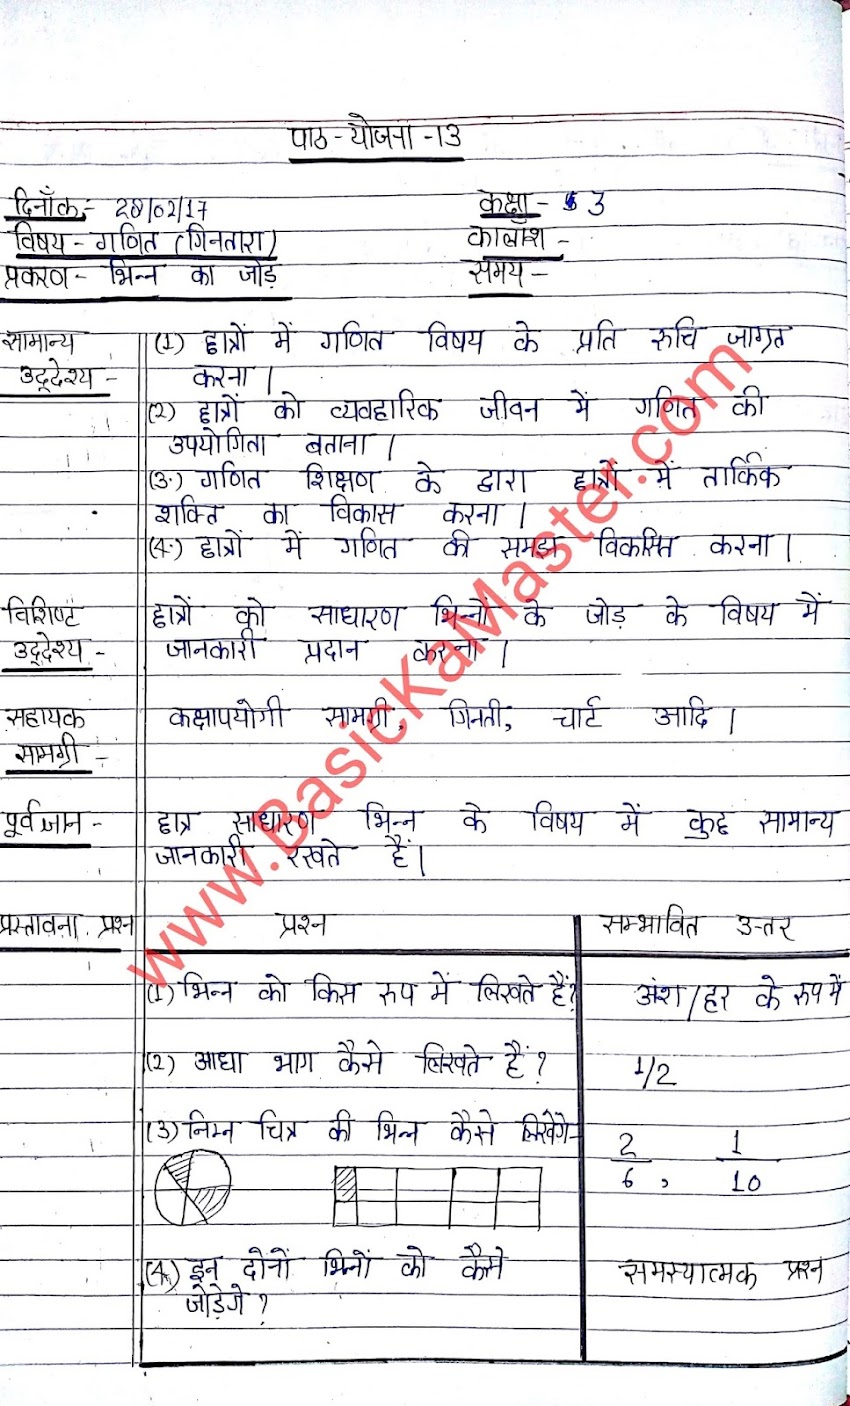 पाठ-योजना-13
दिनाँक:- 20/02/17 कक्षा- 3
विषय- गणित (गिनतारा) कालांश-
प्रकरण- भिन्न का जोड़ समय-
सामान्य (1) छात्रों में गणित विषय के प्रति रुचि जाग्रत
उद्देश्य- करना।
(2) छात्रों को व्यवहारिक जीवन में गणित की
उपयोगिता बताना।
(3.) गणित शिक्षण के द्वारा छात्रों में तार्किक
शक्ति का विकास करना।
(4.) छात्रों में गणित की समझ विकसित करना।
विशिष्ट छात्रों को साधारण भिन्नों के जोड़ के विषय में
उद्देश्य- जानकारी प्रदान करना।
सहायक कक्षापयोगी सामग्री, गिनती, चार्ट आदि।
सामग्री-
पूर्वज्ञान- छात्र साधारण भिन्न के विषय में कुछ सामान्य
जानकारी रखते हैं।
प्रस्तावना प्रश्न प्रश्न सम्भावित उत्तर
(1) भिन्न को किस रूप में लिखते हैं? अंश/हर के रूप में
(2) आधा भाग कैसे लिखते हैं? 1/2
(3) निम्न चित्र की भिन्न कैसे लिखेंगे- 2/6, 1/10
(4.) इन दोनों भिन्नों को कैसे समस्यात्मक प्रश्न
जोड़ेगे?
www.BasicKaMaster.com